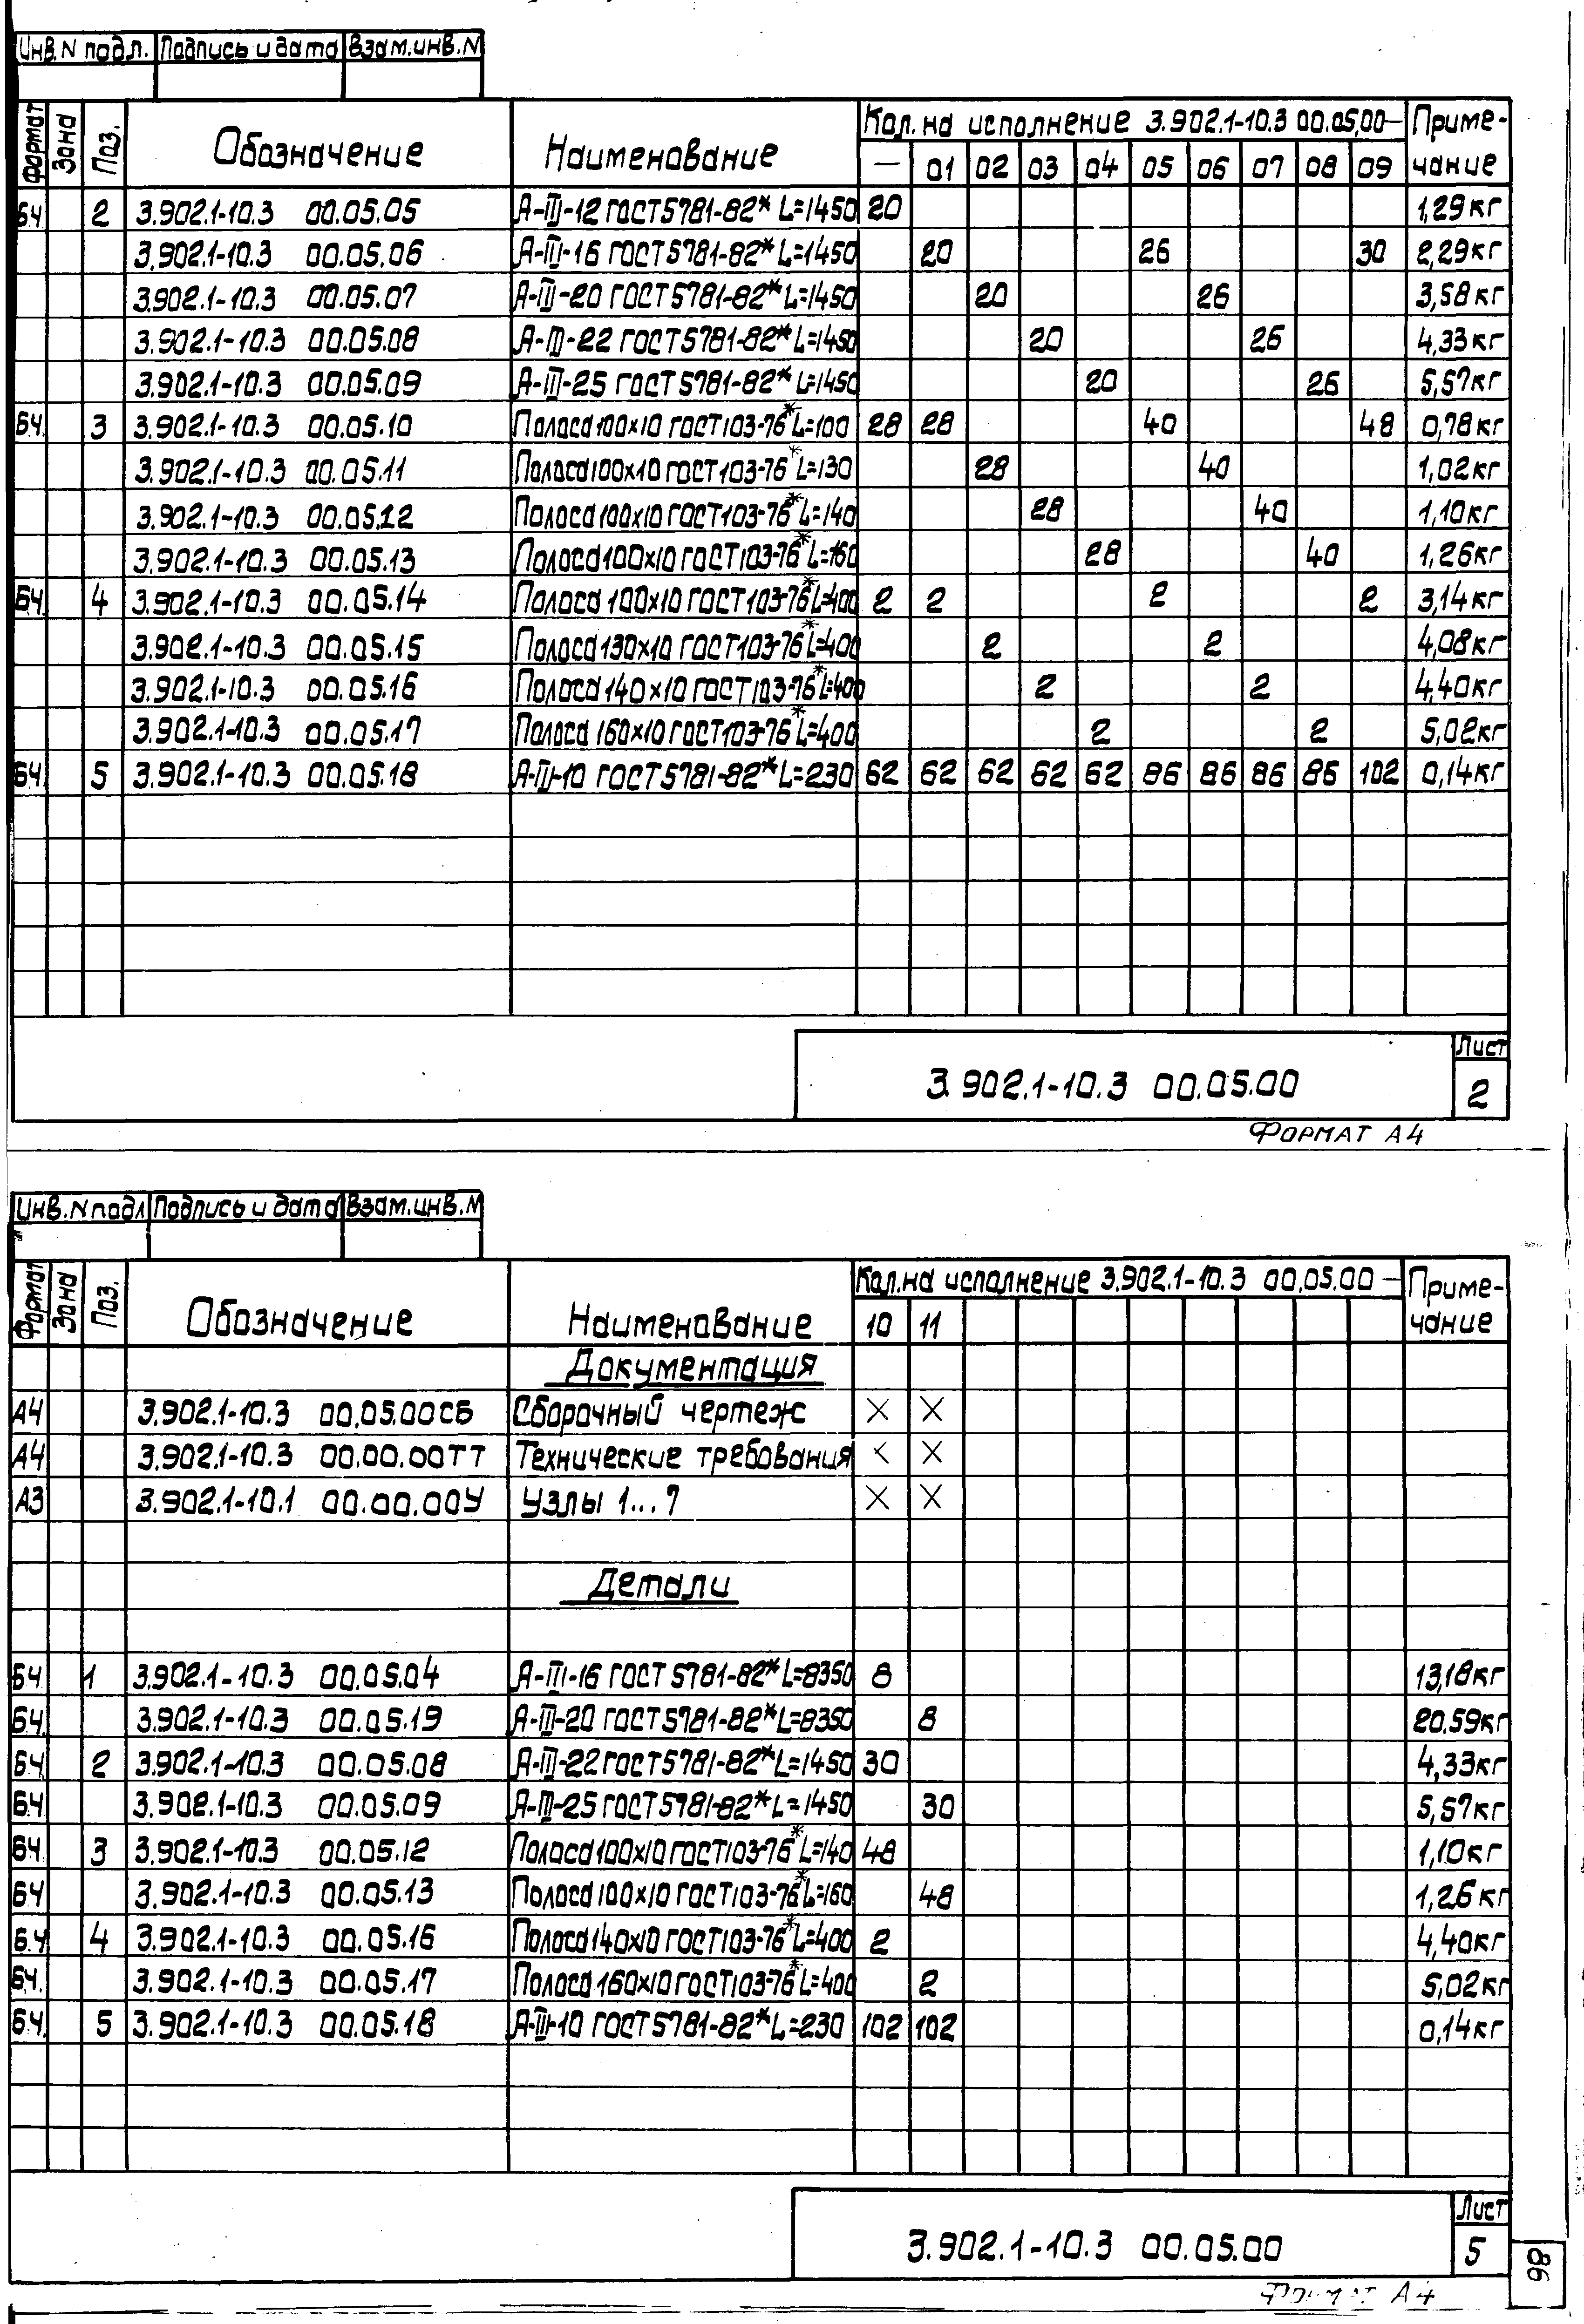 Инв.N подл. Подпись и дата Взам.инв.N
Формат Зона Поз. Обозначение Наименование Кол. на исполнение 3.902.1-10.3 00.05.00- Приме-
— 01 02 03 04 05 06 07 08 09 чание
БЧ 2 3.902.1-10.3 00.05.05 А-III-12 ГОСТ 5781-82* L=1450 20 1,29кг
3.902.1-10.3 00.05.06 А-III-16 ГОСТ 5781-82* L=1450 20 26 30 2,29кг
3.902.1-10.3 00.05.07 А-III-20 ГОСТ 5781-82* L=1450 20 26 3,58кг
3.902.1-10.3 00.05.08 А-III-22 ГОСТ 5781-82* L=1450 20 26 4,33кг
3.902.1-10.3 00.05.09 А-III-25 ГОСТ 5781-82* L=1450 20 26 5,57кг
БЧ. 3 3.902.1-10.3 00.05.10 Полоса 100х10 ГОСТ 103-76* L=100 28 28 40 48 0,78кг
3.902.1-10.3 00.05.11 Полоса 100х10 ГОСТ 103-76* L=130 28 40 1,02кг
3.902.1-10.3 00.05.12 Полоса 100х10 ГОСТ 103-76* L=140 28 40 1,10кг
3.902.1-10.3 00.05.13 Полоса 100х10 ГОСТ 103-76* L=160 28 40 1,26кг
БЧ. 4 3.902.1-10.3 00.05.14 Полоса 100х10 ГОСТ 103-76* L=400 2 2 2 2 3,14кг
3.902.1-10.3 00.05.15 Полоса 130х10 ГОСТ 103-76* L=400 2 2 4,08кг
3.902.1-10.3 00.05.16 Полоса 140х10 ГОСТ 103-76* L=400 2 2 4,40кг
3.902.1-10.3 00.05.17 Полоса 160х10 ГОСТ 103-76* L=400 2 2 5,02кг
БЧ. 5 3.902.1-10.3 00.05.18 А-III-10 ГОСТ 5781-82* L=230 62 62 62 62 62 86 86 86 86 102 0,14кг
Лист
3.902.1-10.3 00.05.00 2
ФОРМАТ А4
Инв.N подл Подпись и дата Взам.инв.N
Формат Зона Поз. Обозначение Наименование Кол.на исполнение 3.902.1-10.3 00.05.00 — Приме-
10 11 чание
Документация
А4 3.902.1-10.3 00.05.00СБ Сборочный чертеж X X
А4 3.902.1-10.3 00.00.00ТТ Технические требования X X
А3 3.902.1-10.1 00.00.00У Узлы 1...7 X X
Детали
БЧ 1 3.902.1-10.3 00.05.04 А-III-16 ГОСТ 5781-82* L=8350 8 13,18кг
БЧ. 3.902.1-10.3 00.05.19 А-III-20 ГОСТ 5781-82* L=8350 8 20.59кг
БЧ 2 3.902.1-10.3 00.05.08 А-III-22 ГОСТ 5781-82* L=1450 30 4,33кг
БЧ 3.902.1-10.3 00.05.09 А-III-25 ГОСТ 5781-82* L=1450 30 5,57кг
БЧ 3 3.902.1-10.3 00.05.12 Полоса 100х10 ГОСТ 103-76* L=140 48 1,10кг
БЧ 3.902.1-10.3 00.05.13 Полоса 100х10 ГОСТ 103-76* L=160 48 1,26кг
Б.Ч 4 3.902.1-10.3 00.05.16 Полоса 140х10 ГОСТ 103-76* L=400 2 4,40кг
БЧ. 3.902.1-10.3 00.05.17 Полоса 160х10 ГОСТ 103-76* L=400 2 5,02кг
Б.Ч. 5 3.902.1-10.3 00.05.18 А-III-10 ГОСТ 5781-82* L=230 102 102 0,14кг
Лист
3.902.1-10.3 00.05.00 5
86
Формат А4